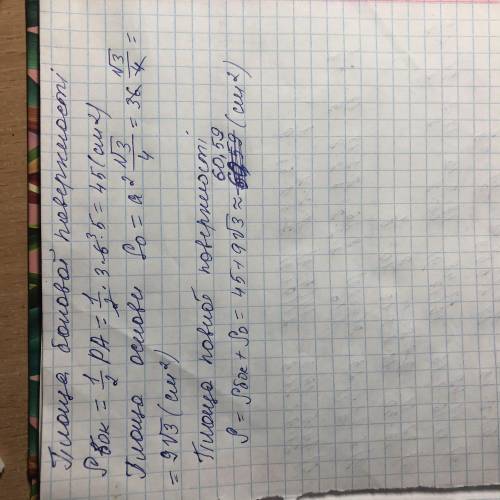 Площа бокової поверхності
Sбок = 1/2 PA = 1/2 · 3 · 6³ · 5 = 45 (см²)
Площа основи So = a² √3/4 = 36 √3/4 =
= 9√3 (см²)
Площа повної поверхності
60,59
S = Sбок + So = 45 + 9√3 ≈ (см²)